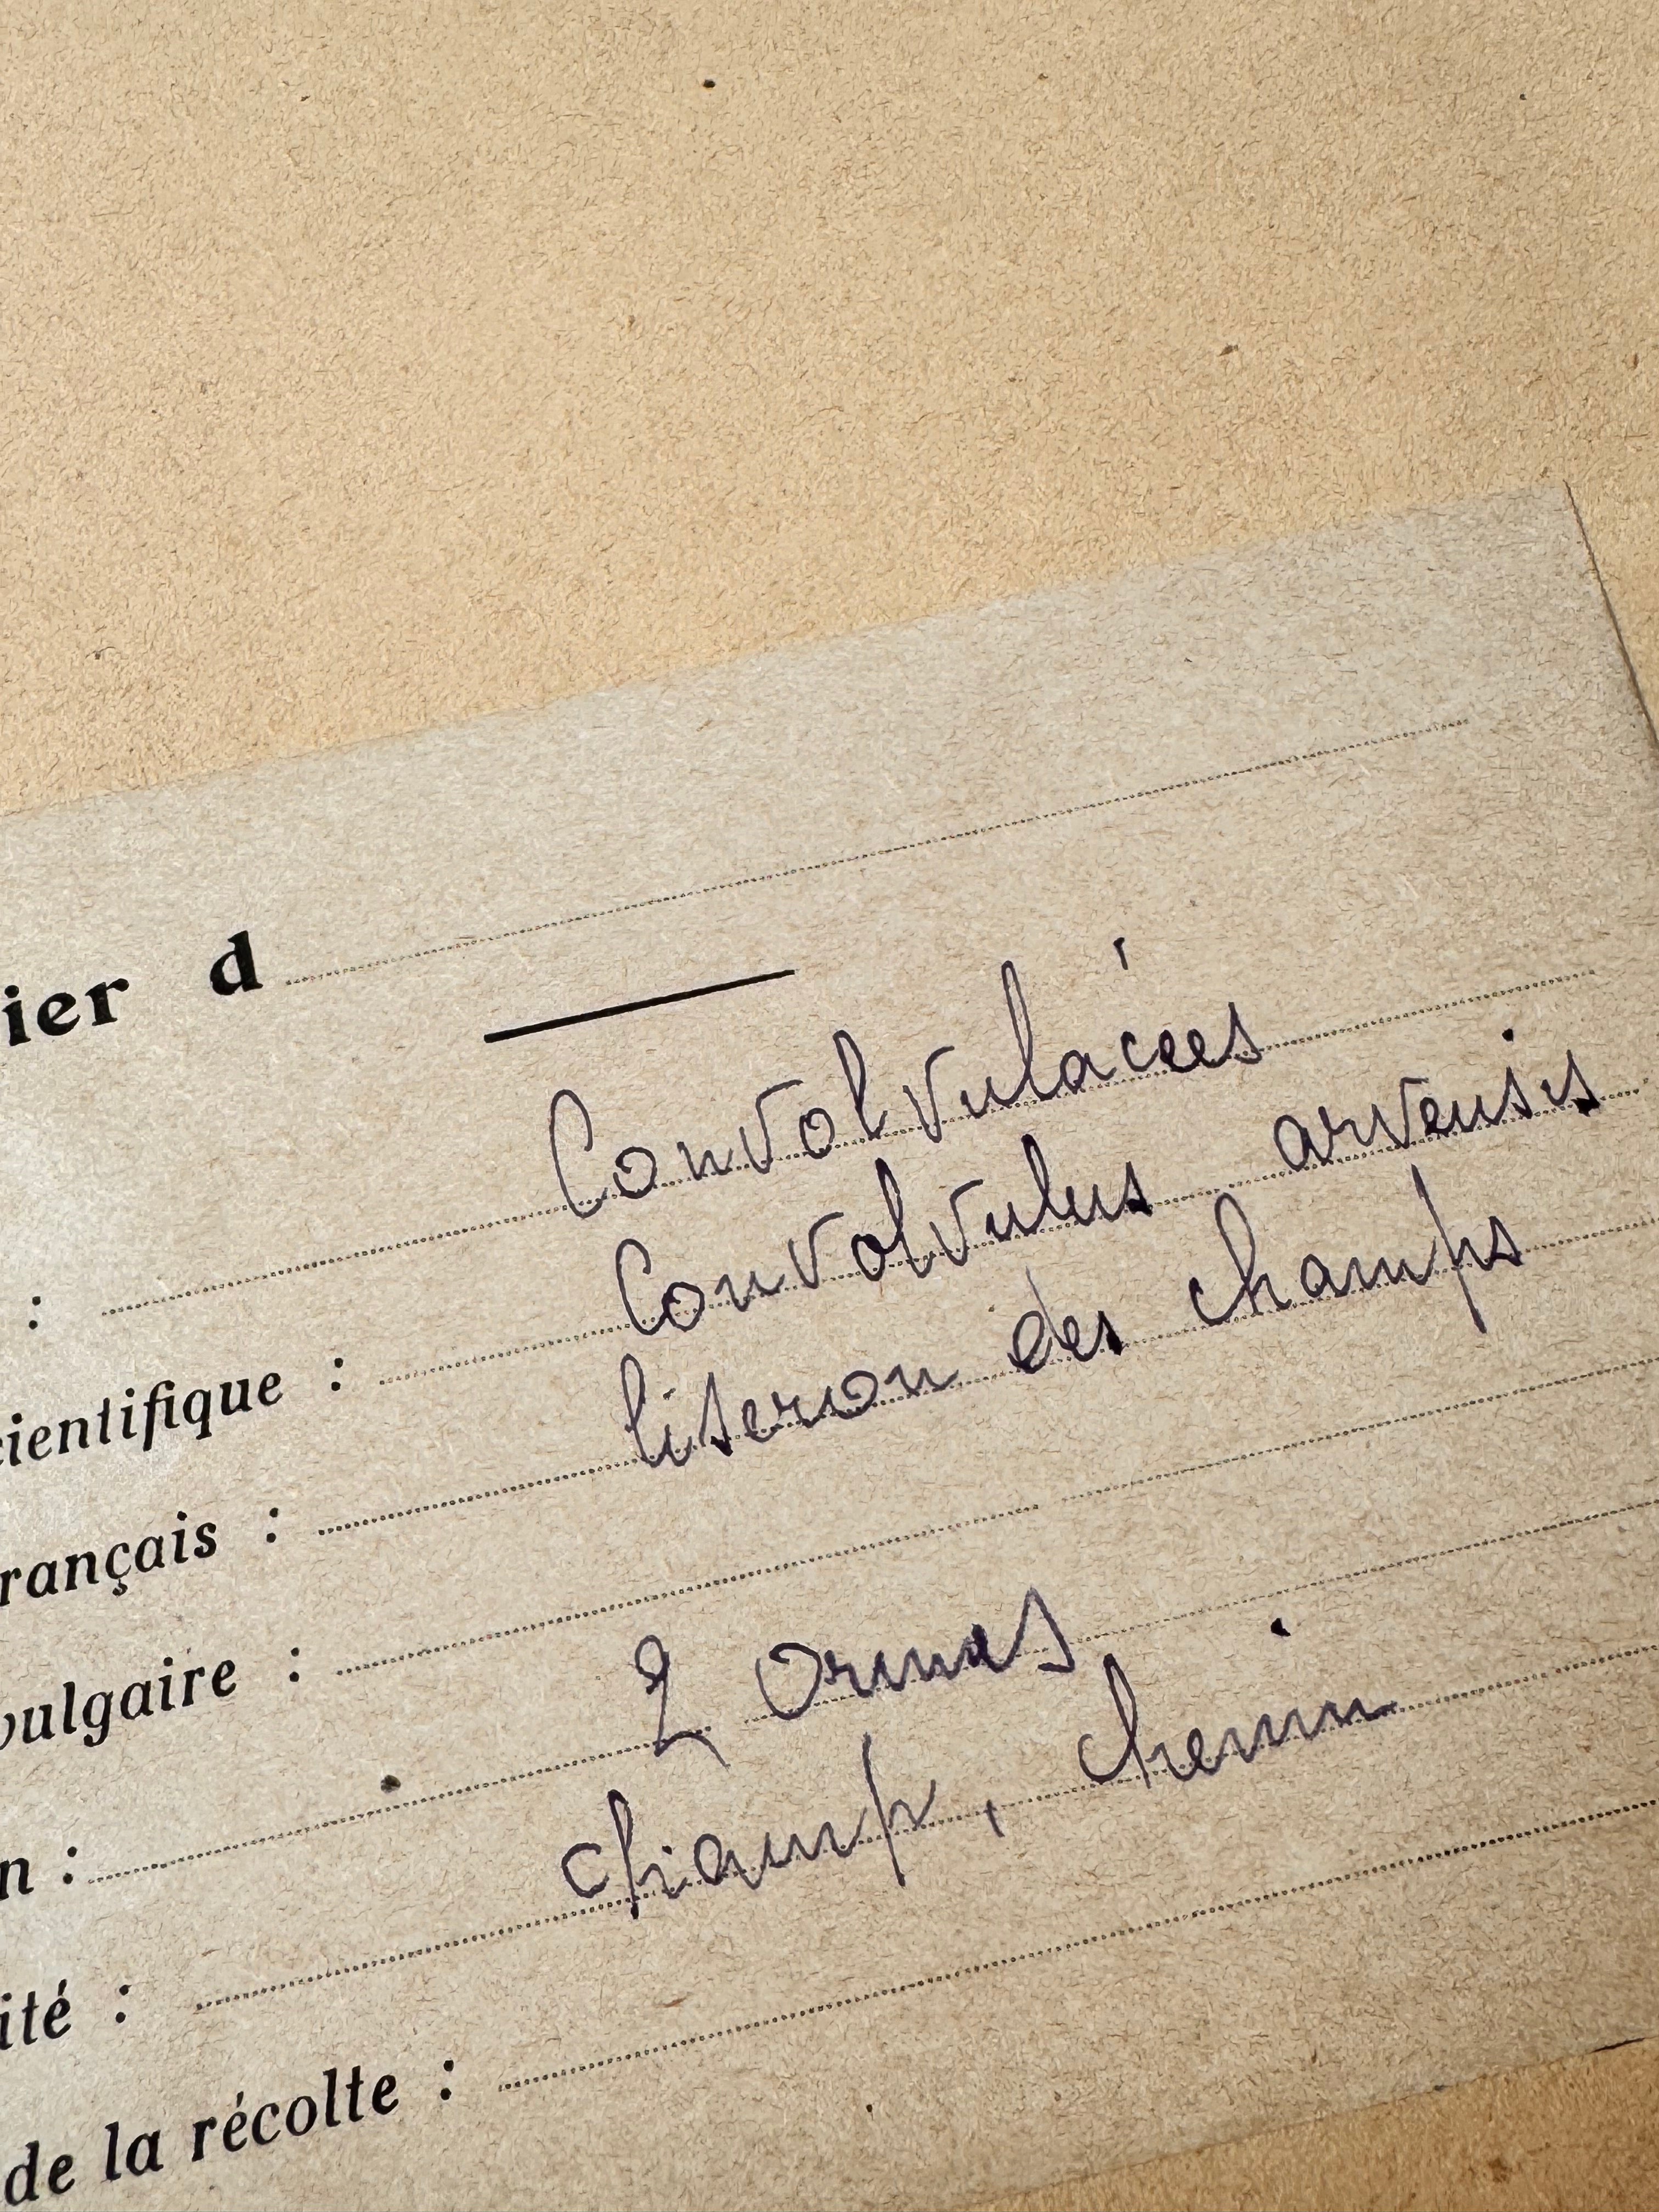 ier d
: Convolvulacées
cientifique : Convolvulus arvensis
rançais : liseron des champs
vulgaire :
n : 2 Ormes
ité : champ, chemin
de la récolte :